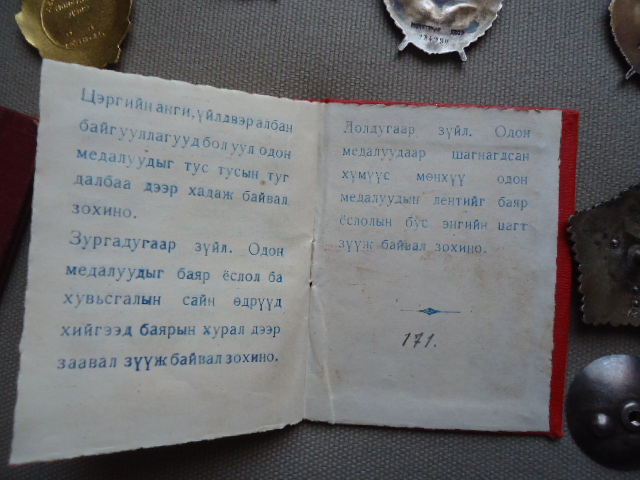 Цэргийн анги, үйлдвэр албан
байгууллагууд бол уул одон
медалуудыг тус тусын туг
далбаа дээр хадаж байвал
зохино.
Зургадугаар зүйл. Одон
медалуудыг баяр ёслол ба
хувьсгалын сайн өдрүүд
хийгээд баярын хурал дээр
заавал зүүж байвал зохино.
Долдугаар зүйл. Одон
медалуудаар шагнагдсан
хүмүүс мөнхүү одон
медалуудын лентийг баяр
ёслолын бус энгийн цагт
зүүж байвал зохино.
171.